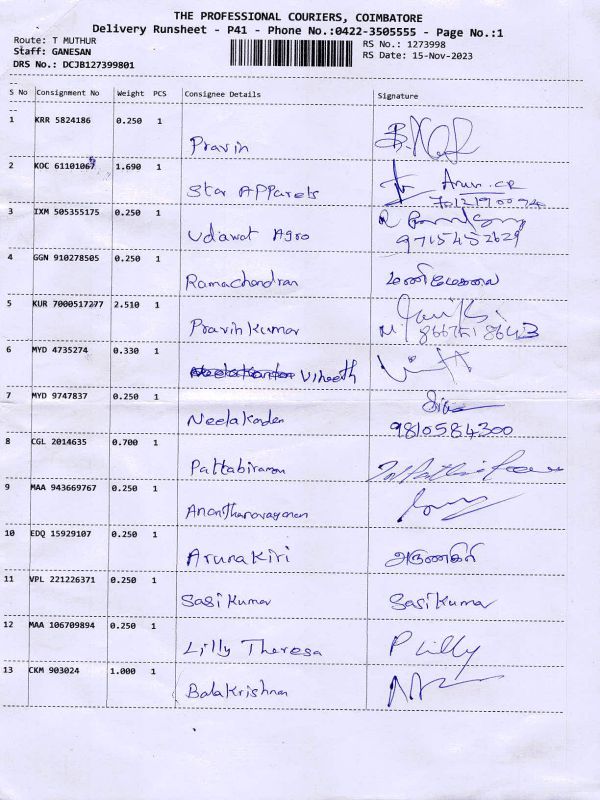 THE PROFESSIONAL COURIERS, COIMBATORE
Delivery Runsheet - P41 - Phone No.:0422-3505555 - Page No.:1
Route: T MUTHUR
RS No.: 1273998
Staff: GANESAN
RS Date: 15-Nov-2023
DRS No.: DCJB127399801
S No Consignment No Weight PCS Consignee Details Signature
1 KRR 5824186 0.250 1
Pravin
2 KOC 61101067 1.690 1
Star Apparels Arun. CR
3 IXM 505355175 0.250 1
Udawat Agro 9715452629
4 GGN 910278505 0.250 1
Ramachandran
5 KUR 7000517277 2.510 1
Pravin Kumar
6 MYD 4735274 0.330 1
Vineeth
7 MYD 9747837 0.250 1
Neelakanden 9810584300
8 CGL 2014635 0.700 1
Pattabiraman
9 MAA 943669767 0.250 1
Anantharayanan
10 EDQ 15929107 0.250 1
Arunakiri அருணகிரி
11 VPL 221226371 0.250 1
Sasi Kumar Sasi Kumar
12 MAA 106709894 0.250 1
Lilly Theresa P Lilly
13 CKM 903024 1.000 1
Balakrishnan